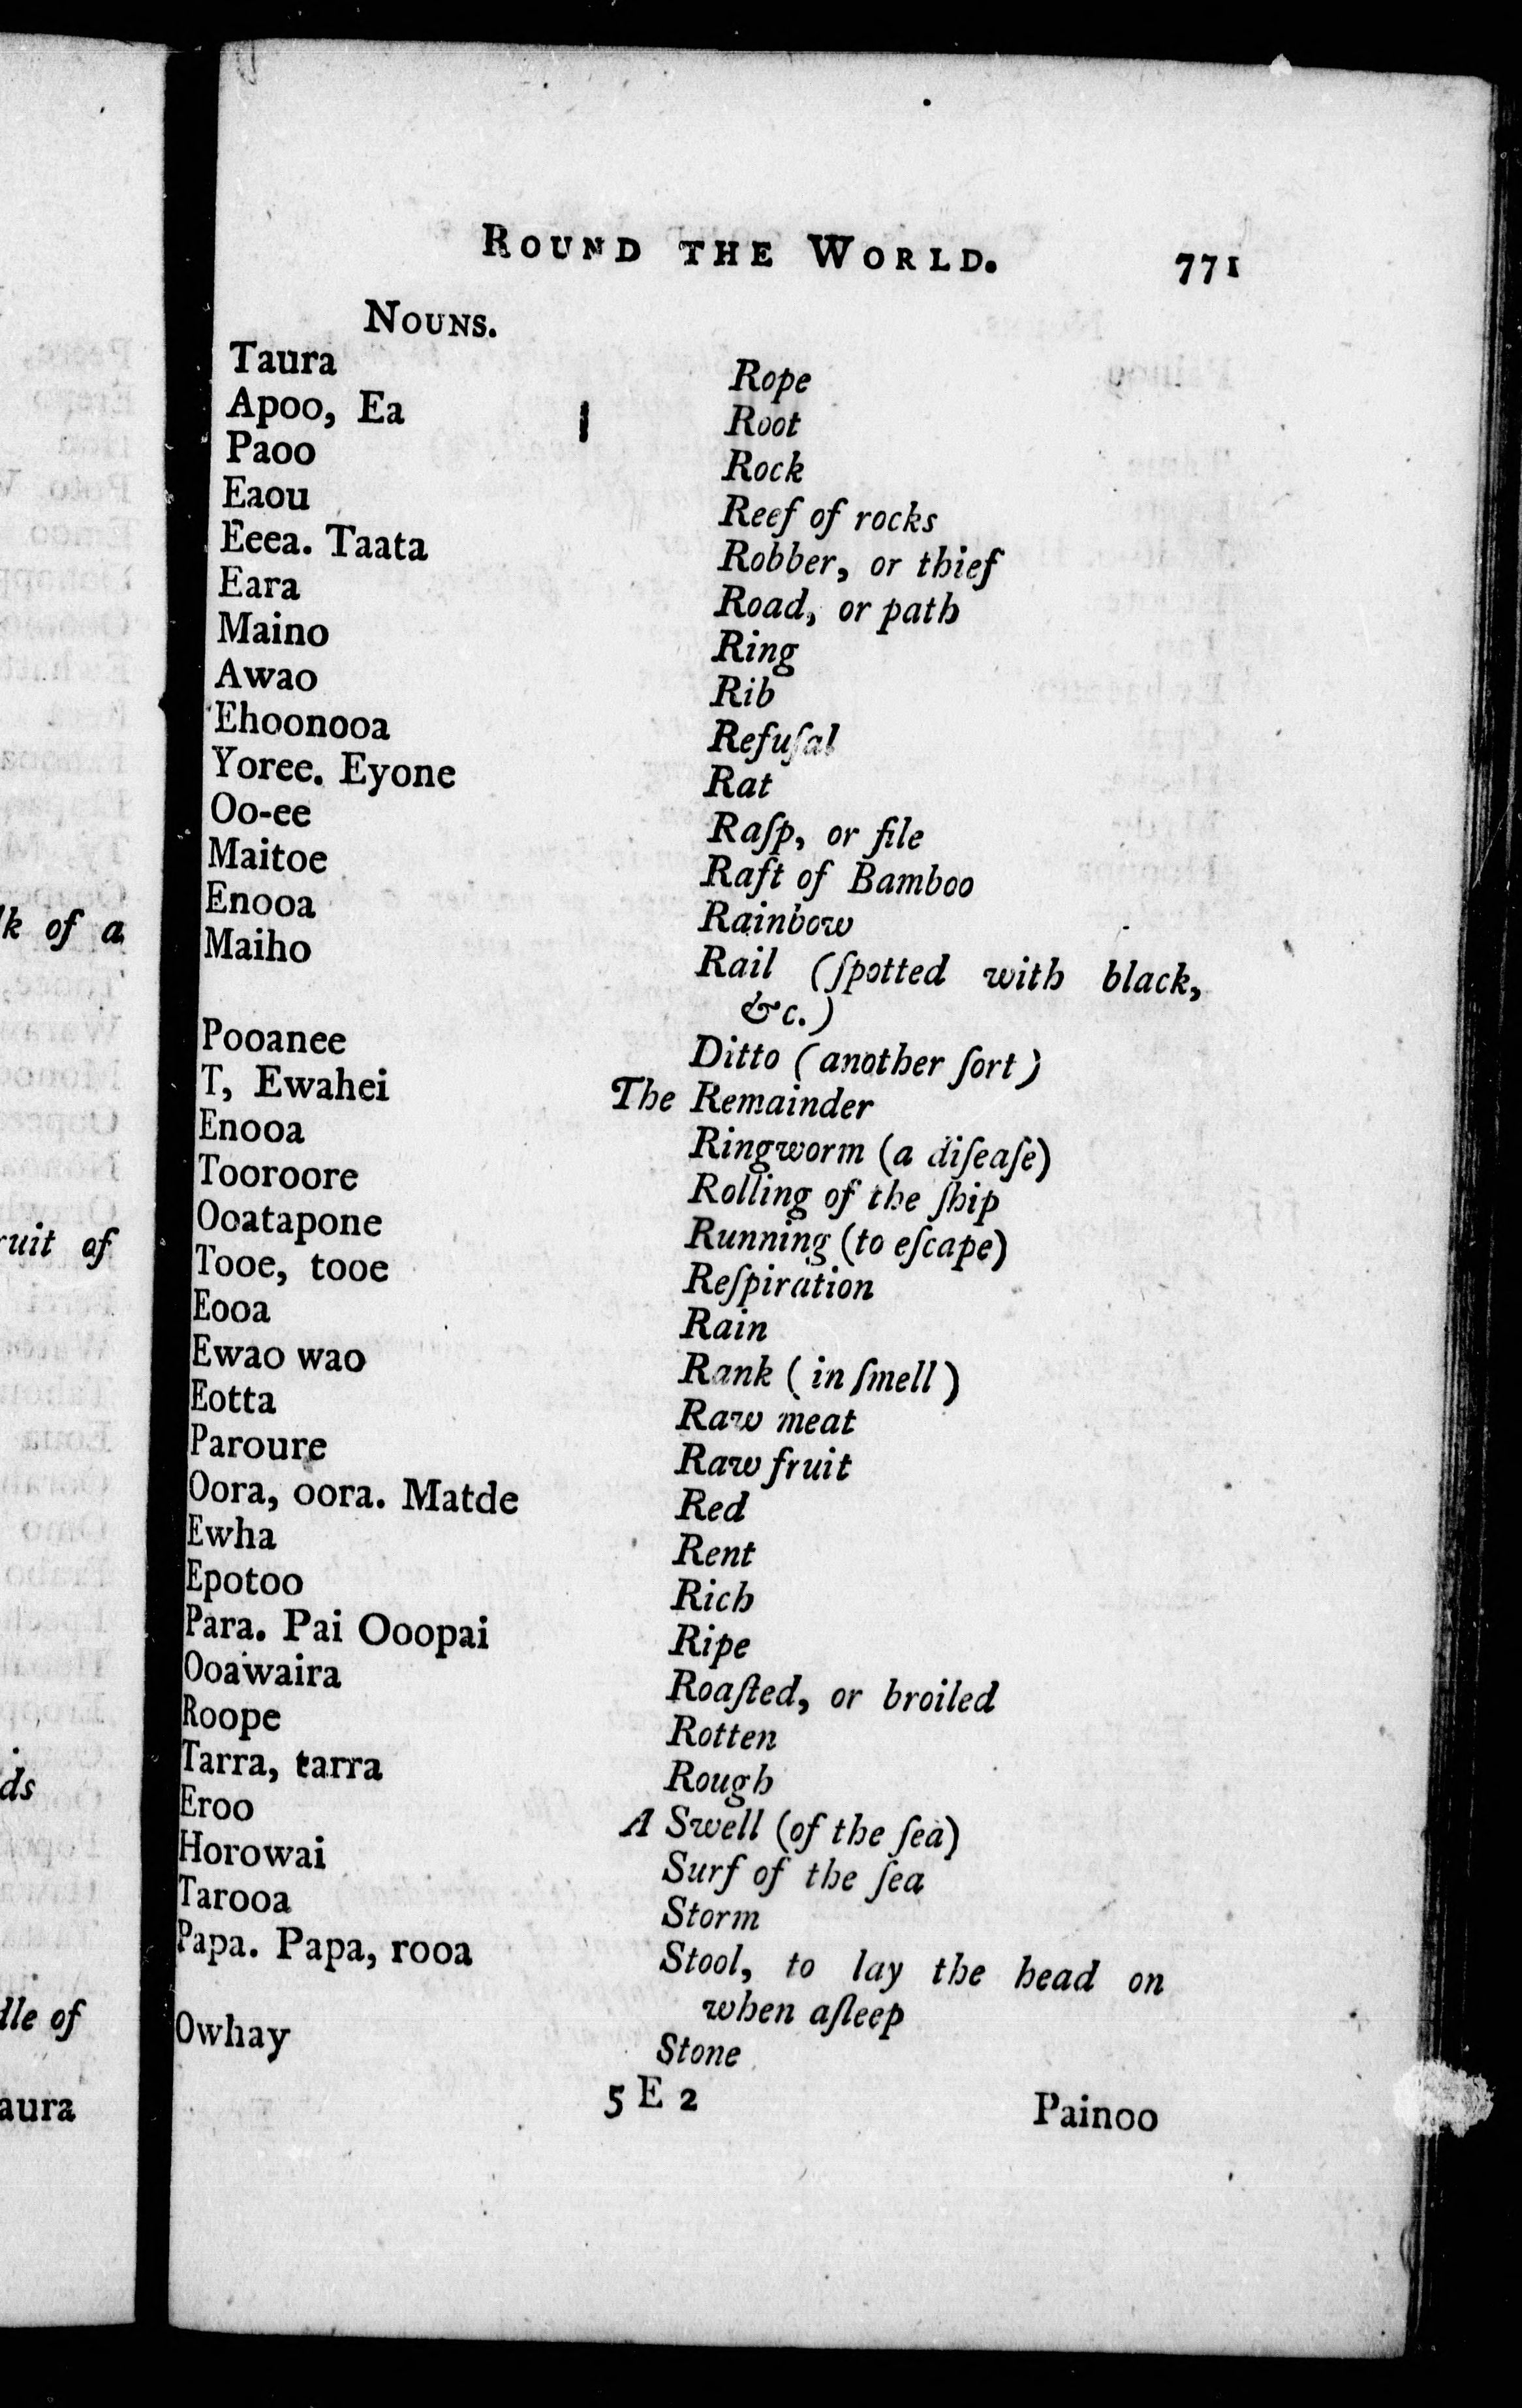 ROUND THE WORLD. 771
NOUNS.
Taura Rope
Apoo, Ea Root
Paoo Rock
Eaou Reef of rocks
Eeea. Taata Robber, or thief
Eara Road, or path
Maino Ring
Awao Rib
Ehoonooa Refuſal
Yoree. Eyone Rat
Oo-ee Raſp, or file
Maitoe Raft of Bamboo
Enooa Rainbow
Maiho Rail (ſpotted with black,
&c.)
Pooanee Ditto (another ſort)
T, Ewahei The Remainder
Enooa Ringworm (a diſeaſe)
Tooroore Rolling of the ſhip
Ooatapone Running (to eſcape)
Tooe, tooe Reſpiration
Eooa Rain
Ewao wao Rank (in ſmell)
Eotta Raw meat
Paroure Raw fruit
Oora, oora. Matde Red
Ewha Rent
Epotoo Rich
Para. Pai Ooopai Ripe
Ooawaira Roaſted, or broiled
Roope Rotten
Tarra, tarra Rough
Eroo A Swell (of the ſea)
Horowai Surf of the ſea
Tarooa Storm
Papa. Papa, rooa Stool, to lay the head on
when aſleep
Owhay Stone
5 E 2 Painoo
of a
of
of